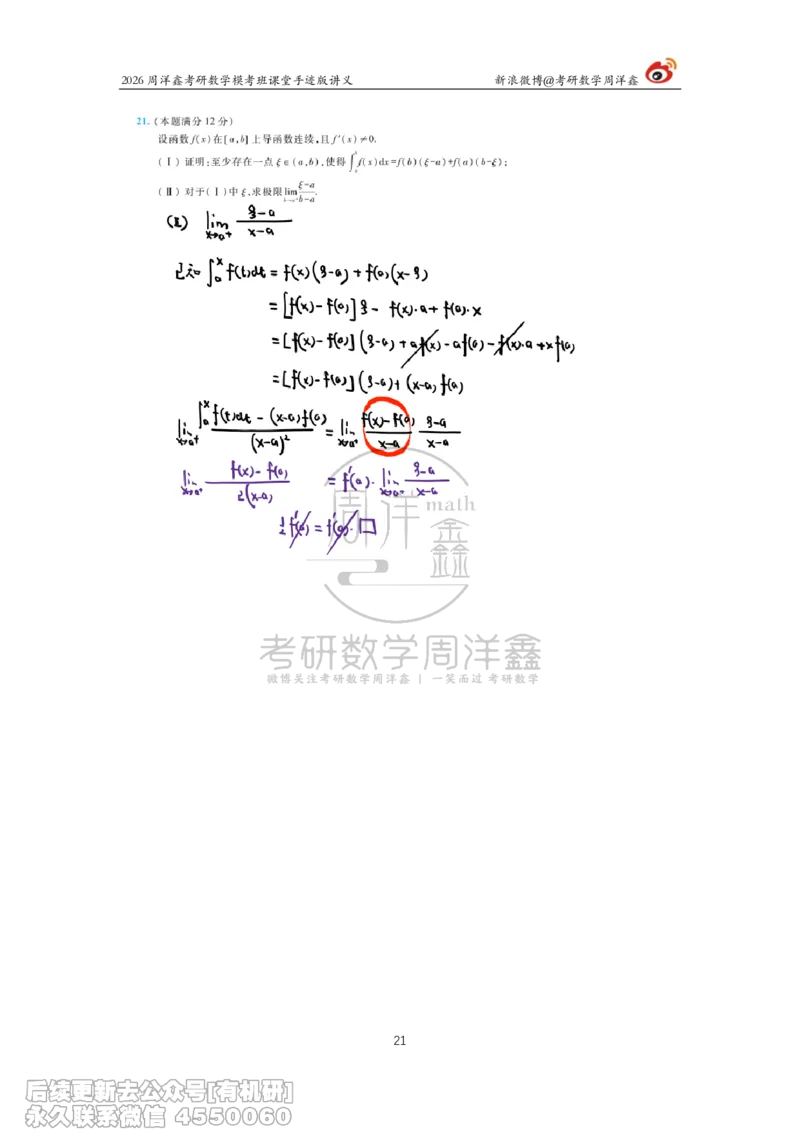 2026 周洋鑫考研数学模考班课堂手迹版讲义
新浪微博@考研数学周洋鑫
21. (本题满分 12 分)
设函数 f(x) 在 [a,b] 上导函数连续,且 f′(x)≠0.
(Ⅰ) 证明:至少存在一点 ξ∈(a,b),使得 ∫ f(x)dx=f(b)(ξ-a)+f(a)(b-ξ);
(Ⅱ) 对于(Ⅰ)中 ξ,求极限 lim (ξ-a)/(b-a).
(Ⅱ) lim x→a⁺ (ξ-a)/(x-a)
已知 ∫ₐˣ f(t)dt = f(x)(ξ-a) + f(a)(x-ξ)
= [f(x)-f(a)]ξ - f(x)·a + f(a)·x
= [f(x)-f(a)](ξ-a) + a f(x) - a f(a) - f(x)·a + x f(a)
= [f(x)-f(a)](ξ-a) + (x-a) f(a)
lim x→a⁺ (∫ₐˣ f(t)dt - (x-a)f(a))/(x-a)² = lim x→a⁺ (f(x)-f(a))/(x-a) · (ξ-a)/(x-a)
lim x→a⁺ (f(x)-f(a))/(2(x-a)) = f′(a)· lim x→a⁺ (ξ-a)/(x-a)
½ f′(a) = f′(a)· □
周洋鑫 math
考研数学周洋鑫
微博关注考研数学周洋鑫 | 一笑而过 考研数学
21
后续更新去公众号[有机研]
永久联系微信 4550060